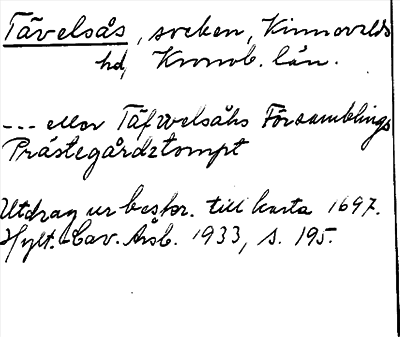 Tävelsås, socken, Kinnevalds
hd, Kronob. län.
--- eller Täfwelsåhs Församlings
Prästegårdztompt
Utdrag ur beskr. till karta 1697.
Hylt.-Cav. Årsb. 1933, s. 195.